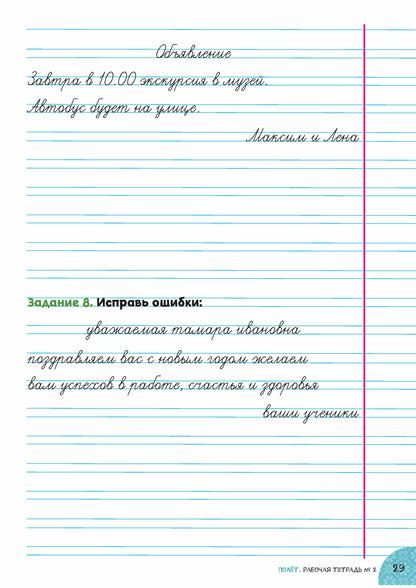 Объявление
Завтра в 10.00 экскурсия в музей.
Автобус будет на улице.
Максим и Лена
Задание 8. Исправь ошибки:
уважаемая тамара ивановна
поздравляем вас с новым годом желаем
вам успехов в работе, счастья и здоровья
ваши ученики
ПОЛЁТ. РАБОЧАЯ ТЕТРАДЬ № 2 29